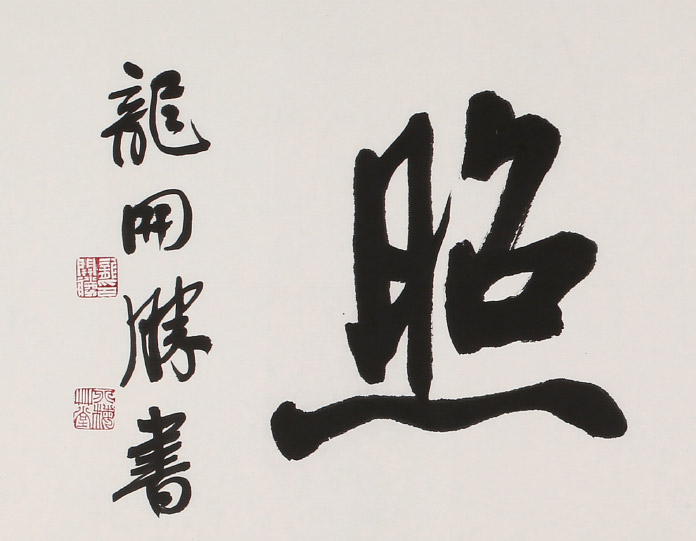 照
龍開勝書